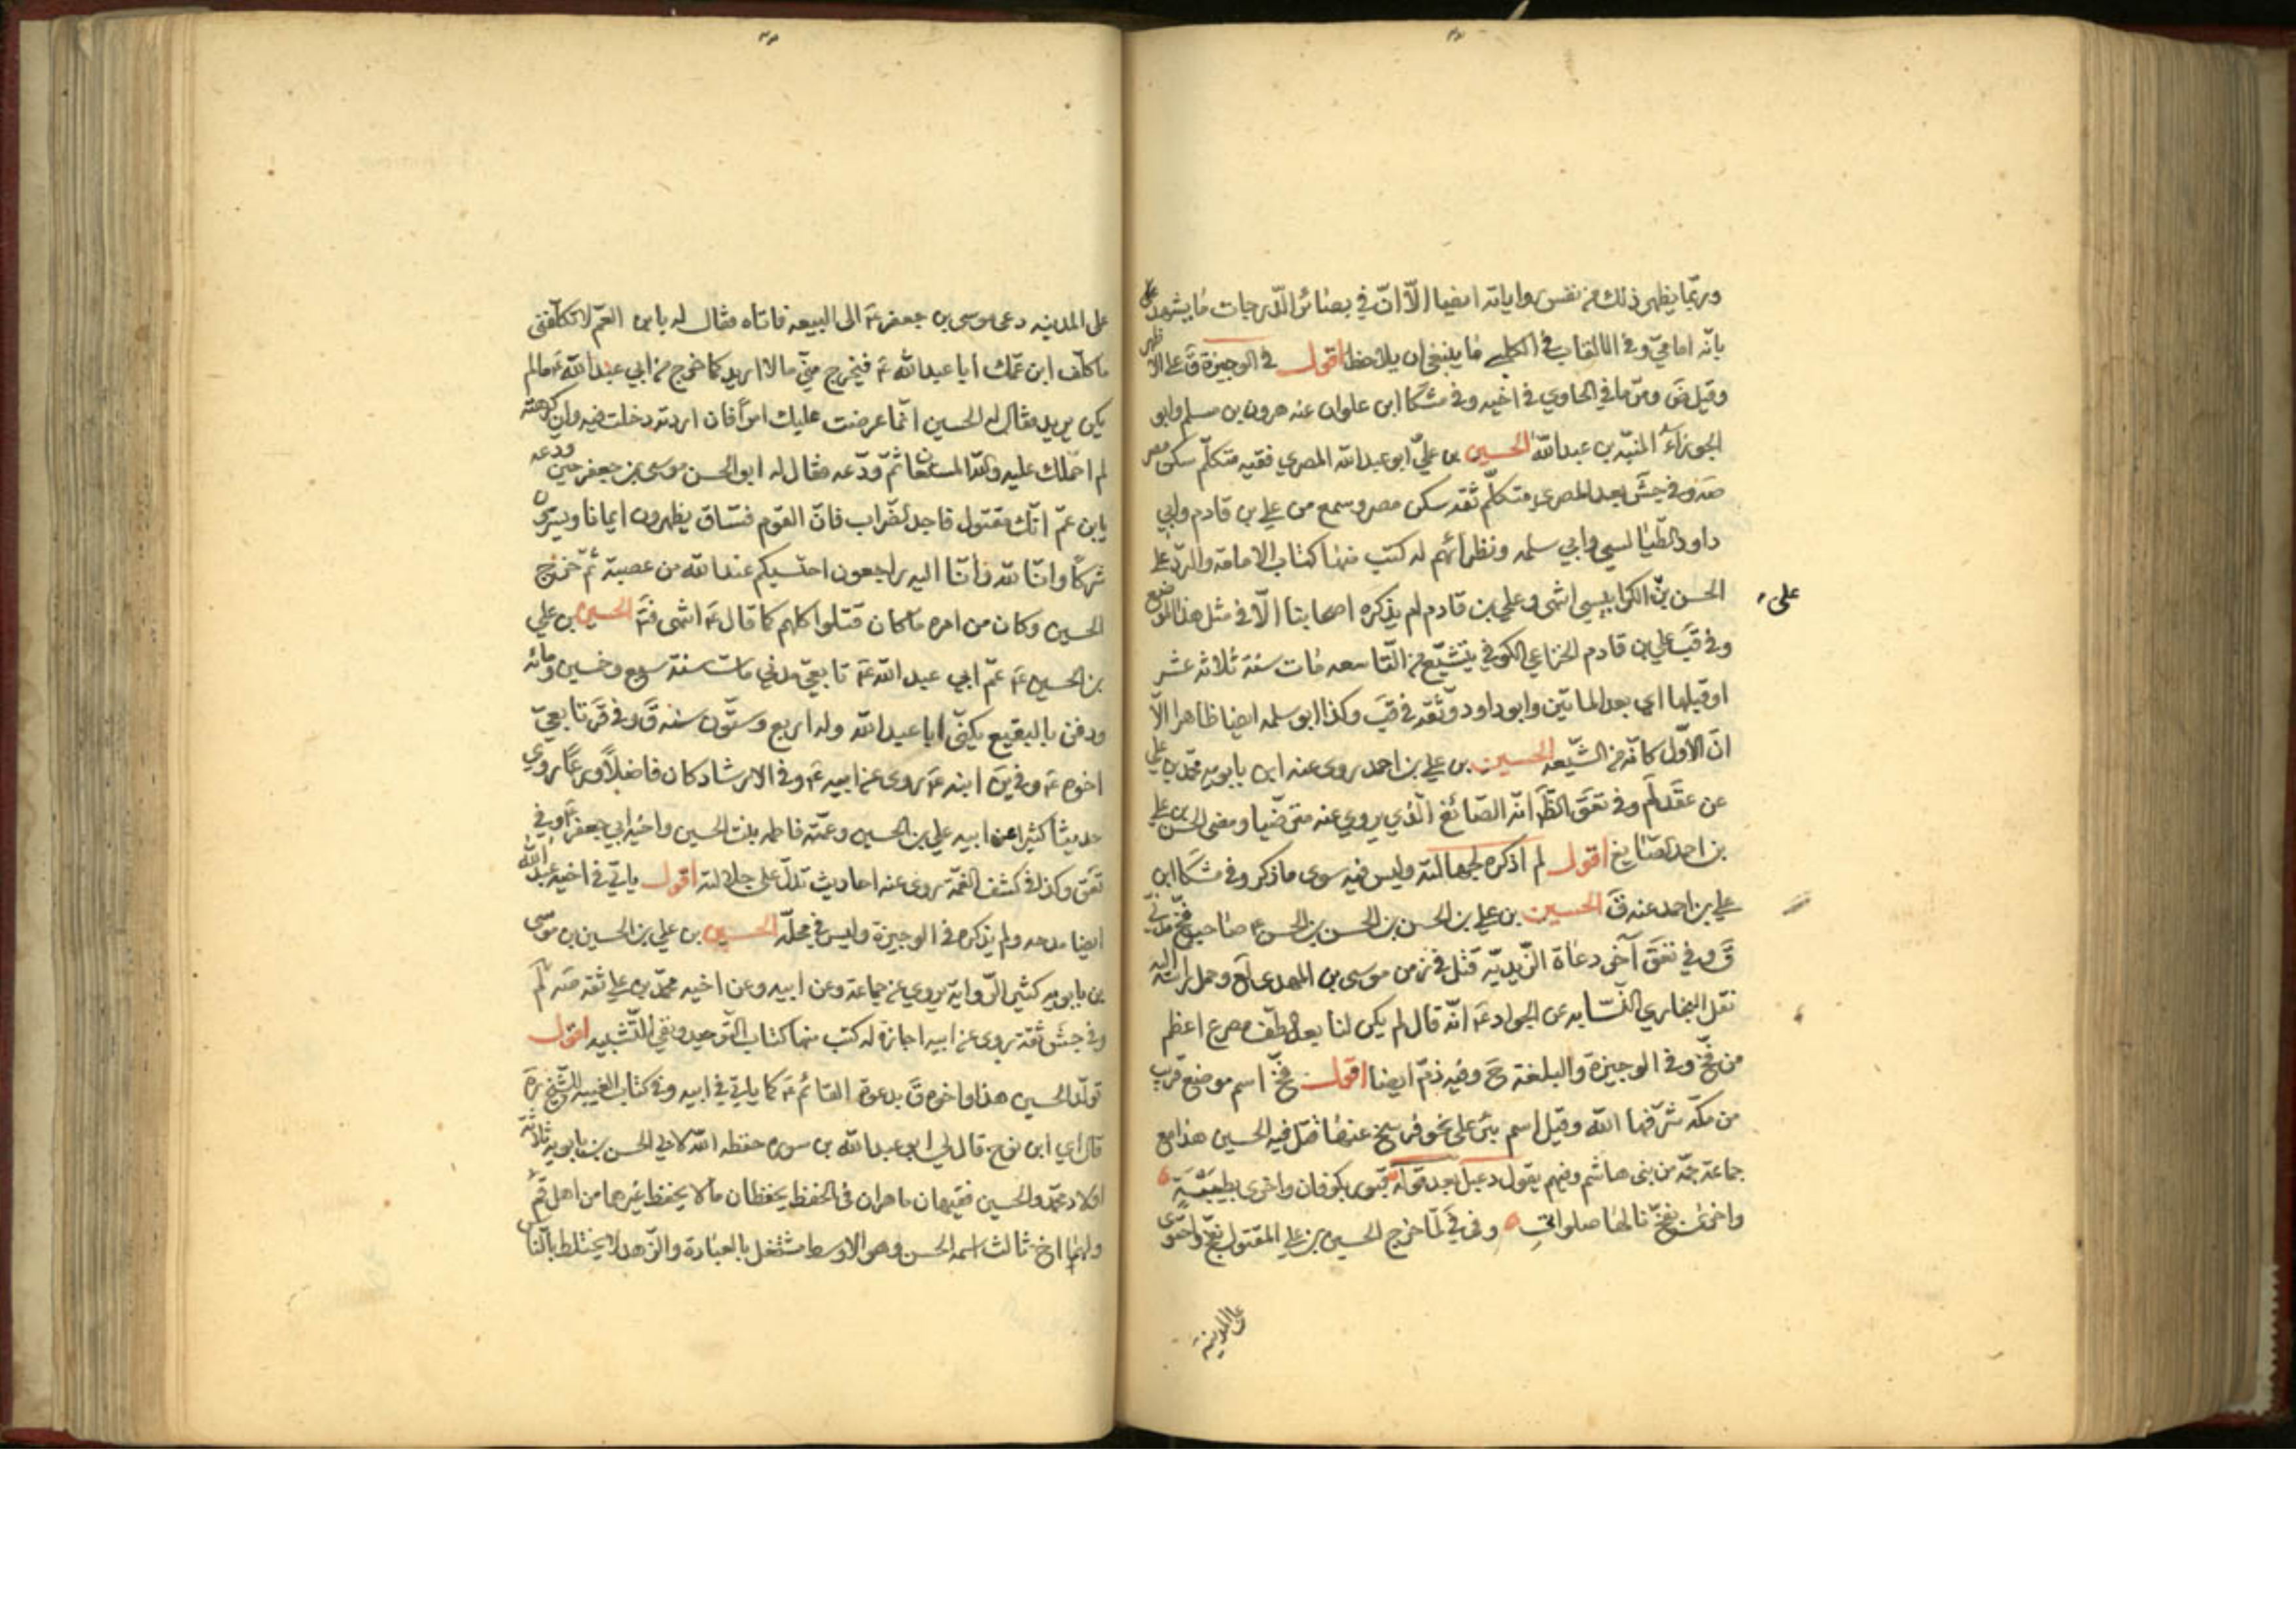 وربما يظهر ذلك من نفس رواياته ايضا الا ان في بصائر الدرجات ما يشهد على
بانه امامي وفي الالقاب في الكلبي ما ينبغي ان يلاحظ اقول في الوجيزة ق على الاظهر
وقيل ض ومر ما في الحاوي في اخيه وفي مشكا ابن علوان عنه هرون بن مسلم وابو
الجوزاء المنبه بن عبدالله الحسين بن علي ابو عبدالله المصري فقيه متكلم سكن مصر
صه وفي جش بعد المصري متكلم ثقه سكن مصر وسمع من علي بن قادم وابي
داود الطيالسي وابي سلمه ونظرائهم له كتب منها كتاب الامامة والرد على
الحسن بن الكرابيسي انتهى وعلي بن قادم لم يذكره اصحابنا الا في مثل هذا الموضع
على
وفي قب علي بن قادم الخزاعي الكوفي يتشيع من التاسعه مات سنة ثلاثه عشر
او قبلها اي بعد الماتين وابو داود وثقه في قب وكذا ابو سلمه ايضا ظاهرا الا
ان الاول كانه من الشيعه الحسين بن علي بن احمد روى عنه ابن بابويه محمد بن علي
عن عقد لم وفي تعق الظ انه الصائغ الذي يروي عنه مترضيا ومضى الحسن بن علي
بن احمد الصايغ اقول لم اذكره لجهالته وليس فيه سوى ما ذكر وفي مشكا ابن
علي بن احمد عنه ق الحسين بن علي بن الحسن بن الحسن بن الحسن ع صاحب فخ مدني
ق وفي تعق آخر دعاة الزيدية قتل في زمن موسى بن المهدي وحمل راسه اليه
نقل البخاري النسابه عن الجواد ع انه قال لم يكن لنا بعد الطف مصرع اعظم
من فخ وفي الوجيزة والبلغة ح وفيه ذم ايضا اقول فخ اسم موضع قرب
من مكه شرفها الله وقيل اسم بئر على نحو فرسخ عنها قتل فيه الحسين هذا مع
جماعة جمه من بني هاشم وفيهم يقول دعبل بعد قوله قبور بكوفان واخرى بطيبة
واخرى بفخ نالها صلواتي وفي في لما خرج الحسين بن علي المقتول بفخ واحتوى
على المدينة
على المدينه دعى موسى بن جعفر ع الى البيعه فاتاه فقال له يابن العم لا تكلفني
ما كلف ابن عمك ابا عبد الله ع فيخرج مني مالا اريد كما خرج من ابي عبد الله ع مالم
يكن يريد فقال له الحسين انما عرضت عليك امرا فان اردته دخلت فيه وان كرهته
لم احملك عليه والله المستعان ثم ودعه فقال له ابو الحسن موسى بن جعفر حين ودعه
يابن عم انك مقتول فاجد الضراب فان القوم فساق يظهرون ايمانا ويسترون
شركا وانا لله وانا اليه راجعون احتسبكم عند الله من عصبة ثم خرج
الحسين وكان من امره ما كان قتلوا كلهم كما قال ع انتهى الحسين بن علي
بن الحسين ع عم ابي عبد الله ع تابعي مدني مات سنة سبع وخمسين ومائه
ودفن بالبقيع يكنى ابا عبد الله وله اربع وستون سنه ق وفي قر تابعي
اخوه ع وفي ين ابنه ع روى عن ابيه ع وفي الارشاد كان فاضلا ورعا روى
حديثا كثيرا عن ابيه علي بن الحسين وعمته فاطمه بنت الحسين واخيه ابي جعفر ع وفي
تعق وكذا في كشف الغمة روى عنه احاديث تدل على جلالته اقول ياتي في اخيه عبد الله
ايضا مدحه ولم يذكره في الوجيزة وليس في محله الحسين بن علي بن الحسين بن موسى
بن بابويه كثير الرواية يروي عن جماعة وعن ابيه وعن اخيه محمد بن علي ثقه صه لم
وفي جش ثقة روى عن ابيه اجازة له كتب منها كتاب التوحيد ونفي التشبيه اقول
تولد الحسين هذا واخوه ق بدعوة القائم ع كما ياتي في ابيه وفي كتاب الغيبه للشيخ ره
قال اي ابن نوح قال لي ابو عبد الله بن سوره حفظه الله لابي الحسن بن بابويه ثلاثة
اولاد محمد والحسين فقيهان ماهران في الحفظ يحفظان ما لا يحفظ غيرهما من اهل قم
ولهما اخ ثالث اسمه الحسن وهو الاوسط مشتغل بالعبادة والزهد لا يختلط بالناس